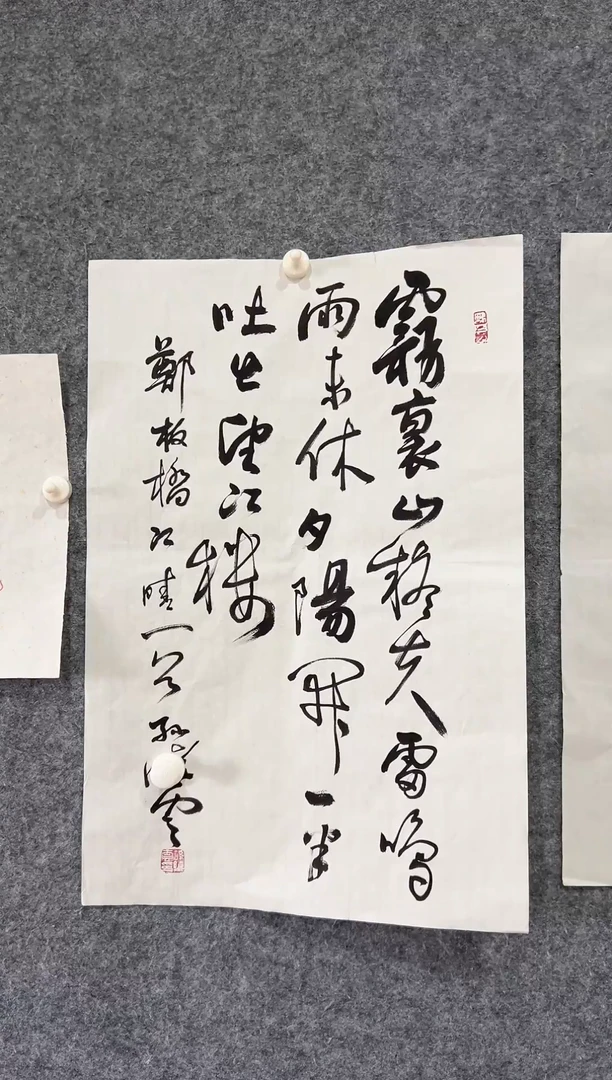 霧裹山疑失雷鳴
雨未休夕陽開一半
吐出望江樓
鄭板橋江晴一首 雲